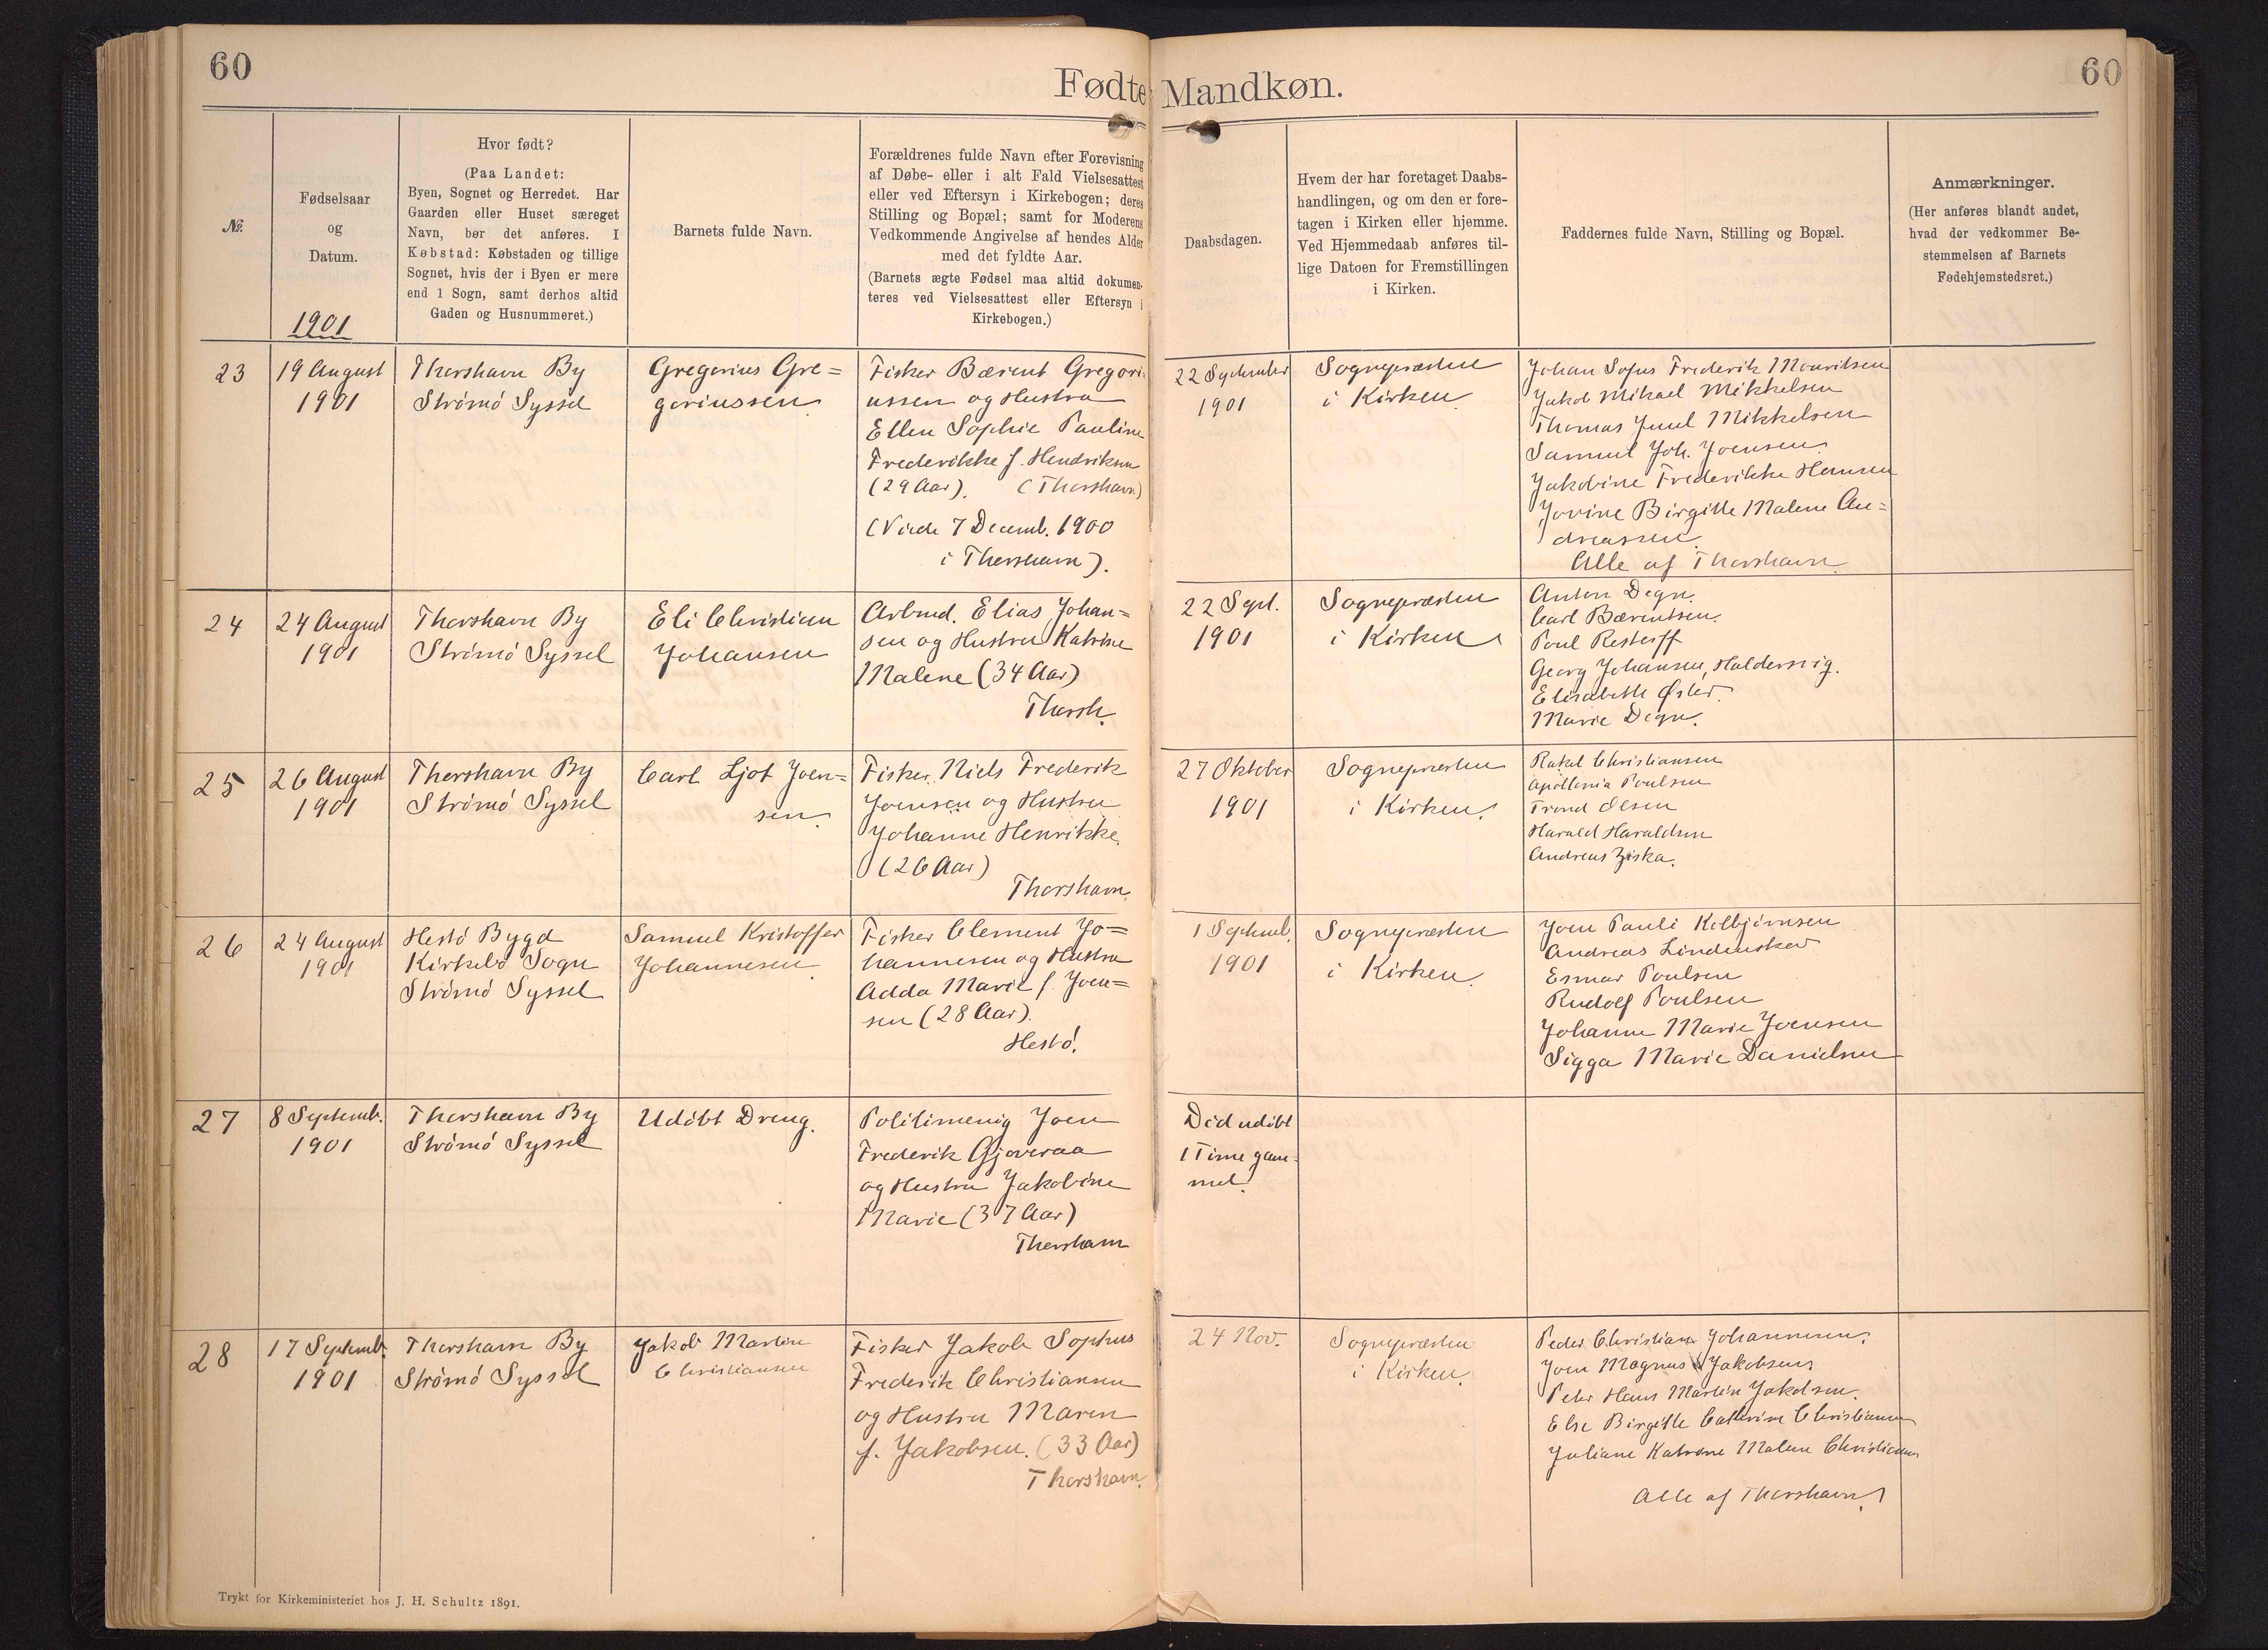 60
Fødte Mandkøn.
60
№.
Fødselsaar
og
Datum.
1901
Hvor født?
(Paa Landet:
Byen, Sognet og Herredet. Har
Gaarden eller Huset særeget
Navn, bør det anføres. I
Købstad: Købstaden og tillige
Sognet, hvis der i Byen er mere
end 1 Sogn, samt derhos altid
Gaden og Husnummeret.)
Barnets fulde Navn.
Forældrenes fulde Navn efter Forevisning
af Døbe- eller i alt Fald Vielsesattest
eller ved Eftersyn i Kirkebogen; deres
Stilling og Bopæl; samt for Moderens
Vedkommende Angivelse af hendes Alder
med det fyldte Aar.
(Barnets ægte Fødsel maa altid dokumen-
teres ved Vielsesattest eller Eftersyn i
Kirkebogen.)
Daabsdagen.
Hvem der har foretaget Daabs-
handlingen, og om den er fore-
tagen i Kirken eller hjemme.
Ved Hjemmedaab anføres til-
lige Datoen for Fremstillingen
i Kirken.
Faddernes fulde Navn, Stilling og Bopæl.
Anmærkninger.
(Her anføres blandt andet,
hvad der vedkommer Be-
stemmelsen af Barnets
Fødehjemstedsret.)
23
19 August
1901
Thorshavn By
Strömö Syssel
Gregorius Gre=
goriussen
Fisker Bærent Gregori
ussen og Hustru
Ellen Sophie Pauline
Frederikke f. Hendriksen
(29 Aar). (Thorshavn)
(Viede 7 Decemb. 1900
i Thorshavn).
22 September
1901
Sognepræsten
i Kirken
Johan Sofus Frederik Mouritsen
Jakob Mikael Mikkelsen
Thomas Juul Mikkelsen
Samuel Joh. Joensen
Jakobine Frederikke Hansen
Jovine Birgitte Malene An=
dreassen.
Alle af Thorshavn
24
24 August
1901
Thorshavn By
Strömö Syssel
Eli Christian
Johansen
Arbmd. Elias Johan=
sen og Hustru Katrine
Malene (34 Aar)
Thorsh.
22 Sept.
1901
Sognepræsten
i Kirken
Anton Degn.
Carl Bærentsen.
Poul Restorff
Georg Johansen, Haldersvig.
Elisabeth Øster.
Marie Degn.
25
26 August
1901
Thorshavn By
Strömö Syssel
Carl Ljot Joen=
sen.
Fisker Niels Frederik
Joensen og Hustru
Johanne Henrikke.
(26 Aar)
Thorshavn.
27 Oktober
1901
Sognepræsten
i Kirken.
Rakel Christiansen
Apollonia Poulsen
Trond Olsen
Harald Haraldsen
Andreas Ziska.
26
24 August
1901
Hestö Bygd
Kirkebö Sogn
Strömö Syssel
Samuel Kristoffer
Johannesen
Fisker Clement Jo=
hannesen og Hustru
Adda Marie f. Joen=
sen (28 Aar).
Hestö.
1 Septemb.
1901
Sognepræsten
i Kirken.
Joen Pauli Kolbjörnsen
Andreas Lindenskov
Esmar Poulsen
Rudolf Poulsen
Johanne Marie Joensen
Sigga Marie Danielsen
27
8 Septemb.
1901
Thorshavn By
Strömö Syssel
Udöbt Dreng.
Politimenig Joen
Frederik Gjoveraa
og Hustru Jakobine
Marie (37 Aar)
Thorshavn
Död udöbt
1 Time gam=
mel.
28
17 Septemb.
1901
Thorshavn By
Strömö Syssel
Jakob Martin
Christiansen
Fisker Jakob Sophus
Frederik Christiansen
og Hustru Maren
f. Jakobsen. (33 Aar)
Thorshavn.
24 Nov.
Sognepræsten
i Kirken.
Peder Christian Johannesen.
Joen Magnus Jakobsen
Peter Hans Martin Jakobsen.
Else Birgitte Cathrine Christiansen
Juliane Katrine Malene Christiansen
Alle af Thorshavn.
Trykt for Kirkeministeriet hos J. H. Schultz 1891.